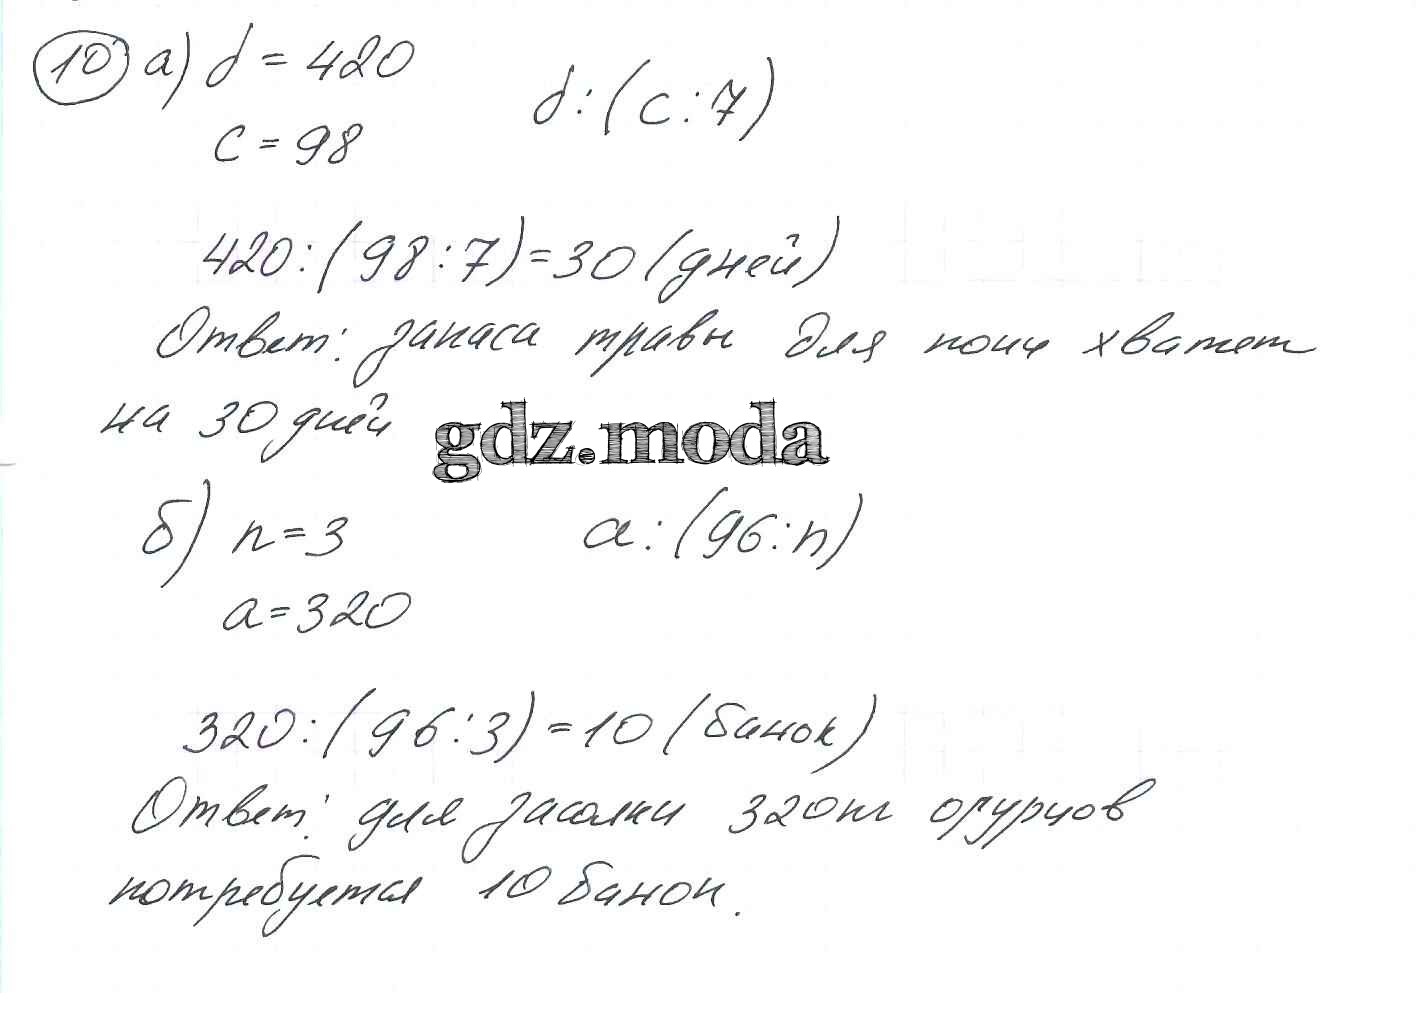 10 а) d = 420
d : (c : 7)
c = 98
420 : (98 : 7) = 30 (дней)
Ответ: запаса травы для пони хватет
на 30 дней
gdz.moda
б) n = 3
a : (96 : n)
a = 320
320 : (96 : 3) = 10 (банок)
Ответ: для засолки 320 кг огурцов
потребуется 10 банок.